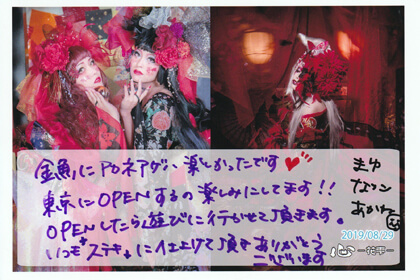 金魚にアゲハ楽しかったです
東京にOPENするの楽しみにしてます!!
OPENしたら遊びに行かせて頂きます。
いつもステキに仕上げて頂きありがとう
ございます
まゆ
なつこ
あかね
2019/08/29
心-花雫-